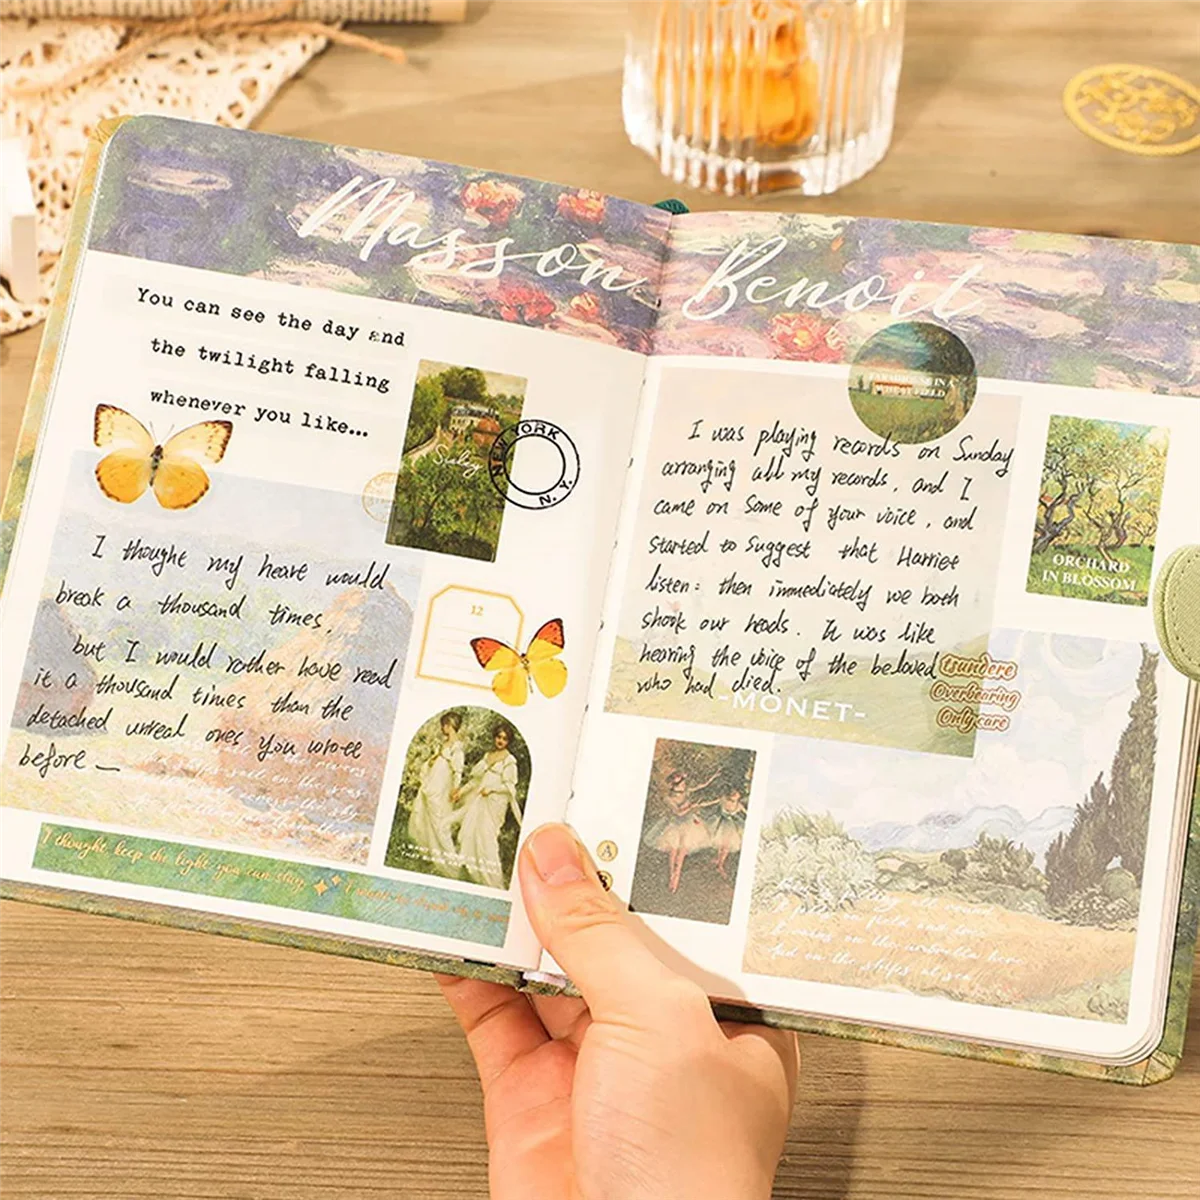 Masson Benoit
You can see the day and
the twilight falling
whenever you like...
Sisley
NEW YORK
N. Y.
I thought my heart would
break a thousand times,
but I would rother have read
it a thousand times than the
detached unreal ones you wrote
before —
12
I thought keep the light you can stay
I was playing records on Sunday
arranging all my records, and I
came on some of your voice, and
started to suggest that Harriet
listen: then immediately we both
shook our heads. It was like
hearing the voice of the beloved
who had died.
-MONET-
FIELD
ORCHARD
IN BLOSSOM
tsundere
Overbearing
Only care
A